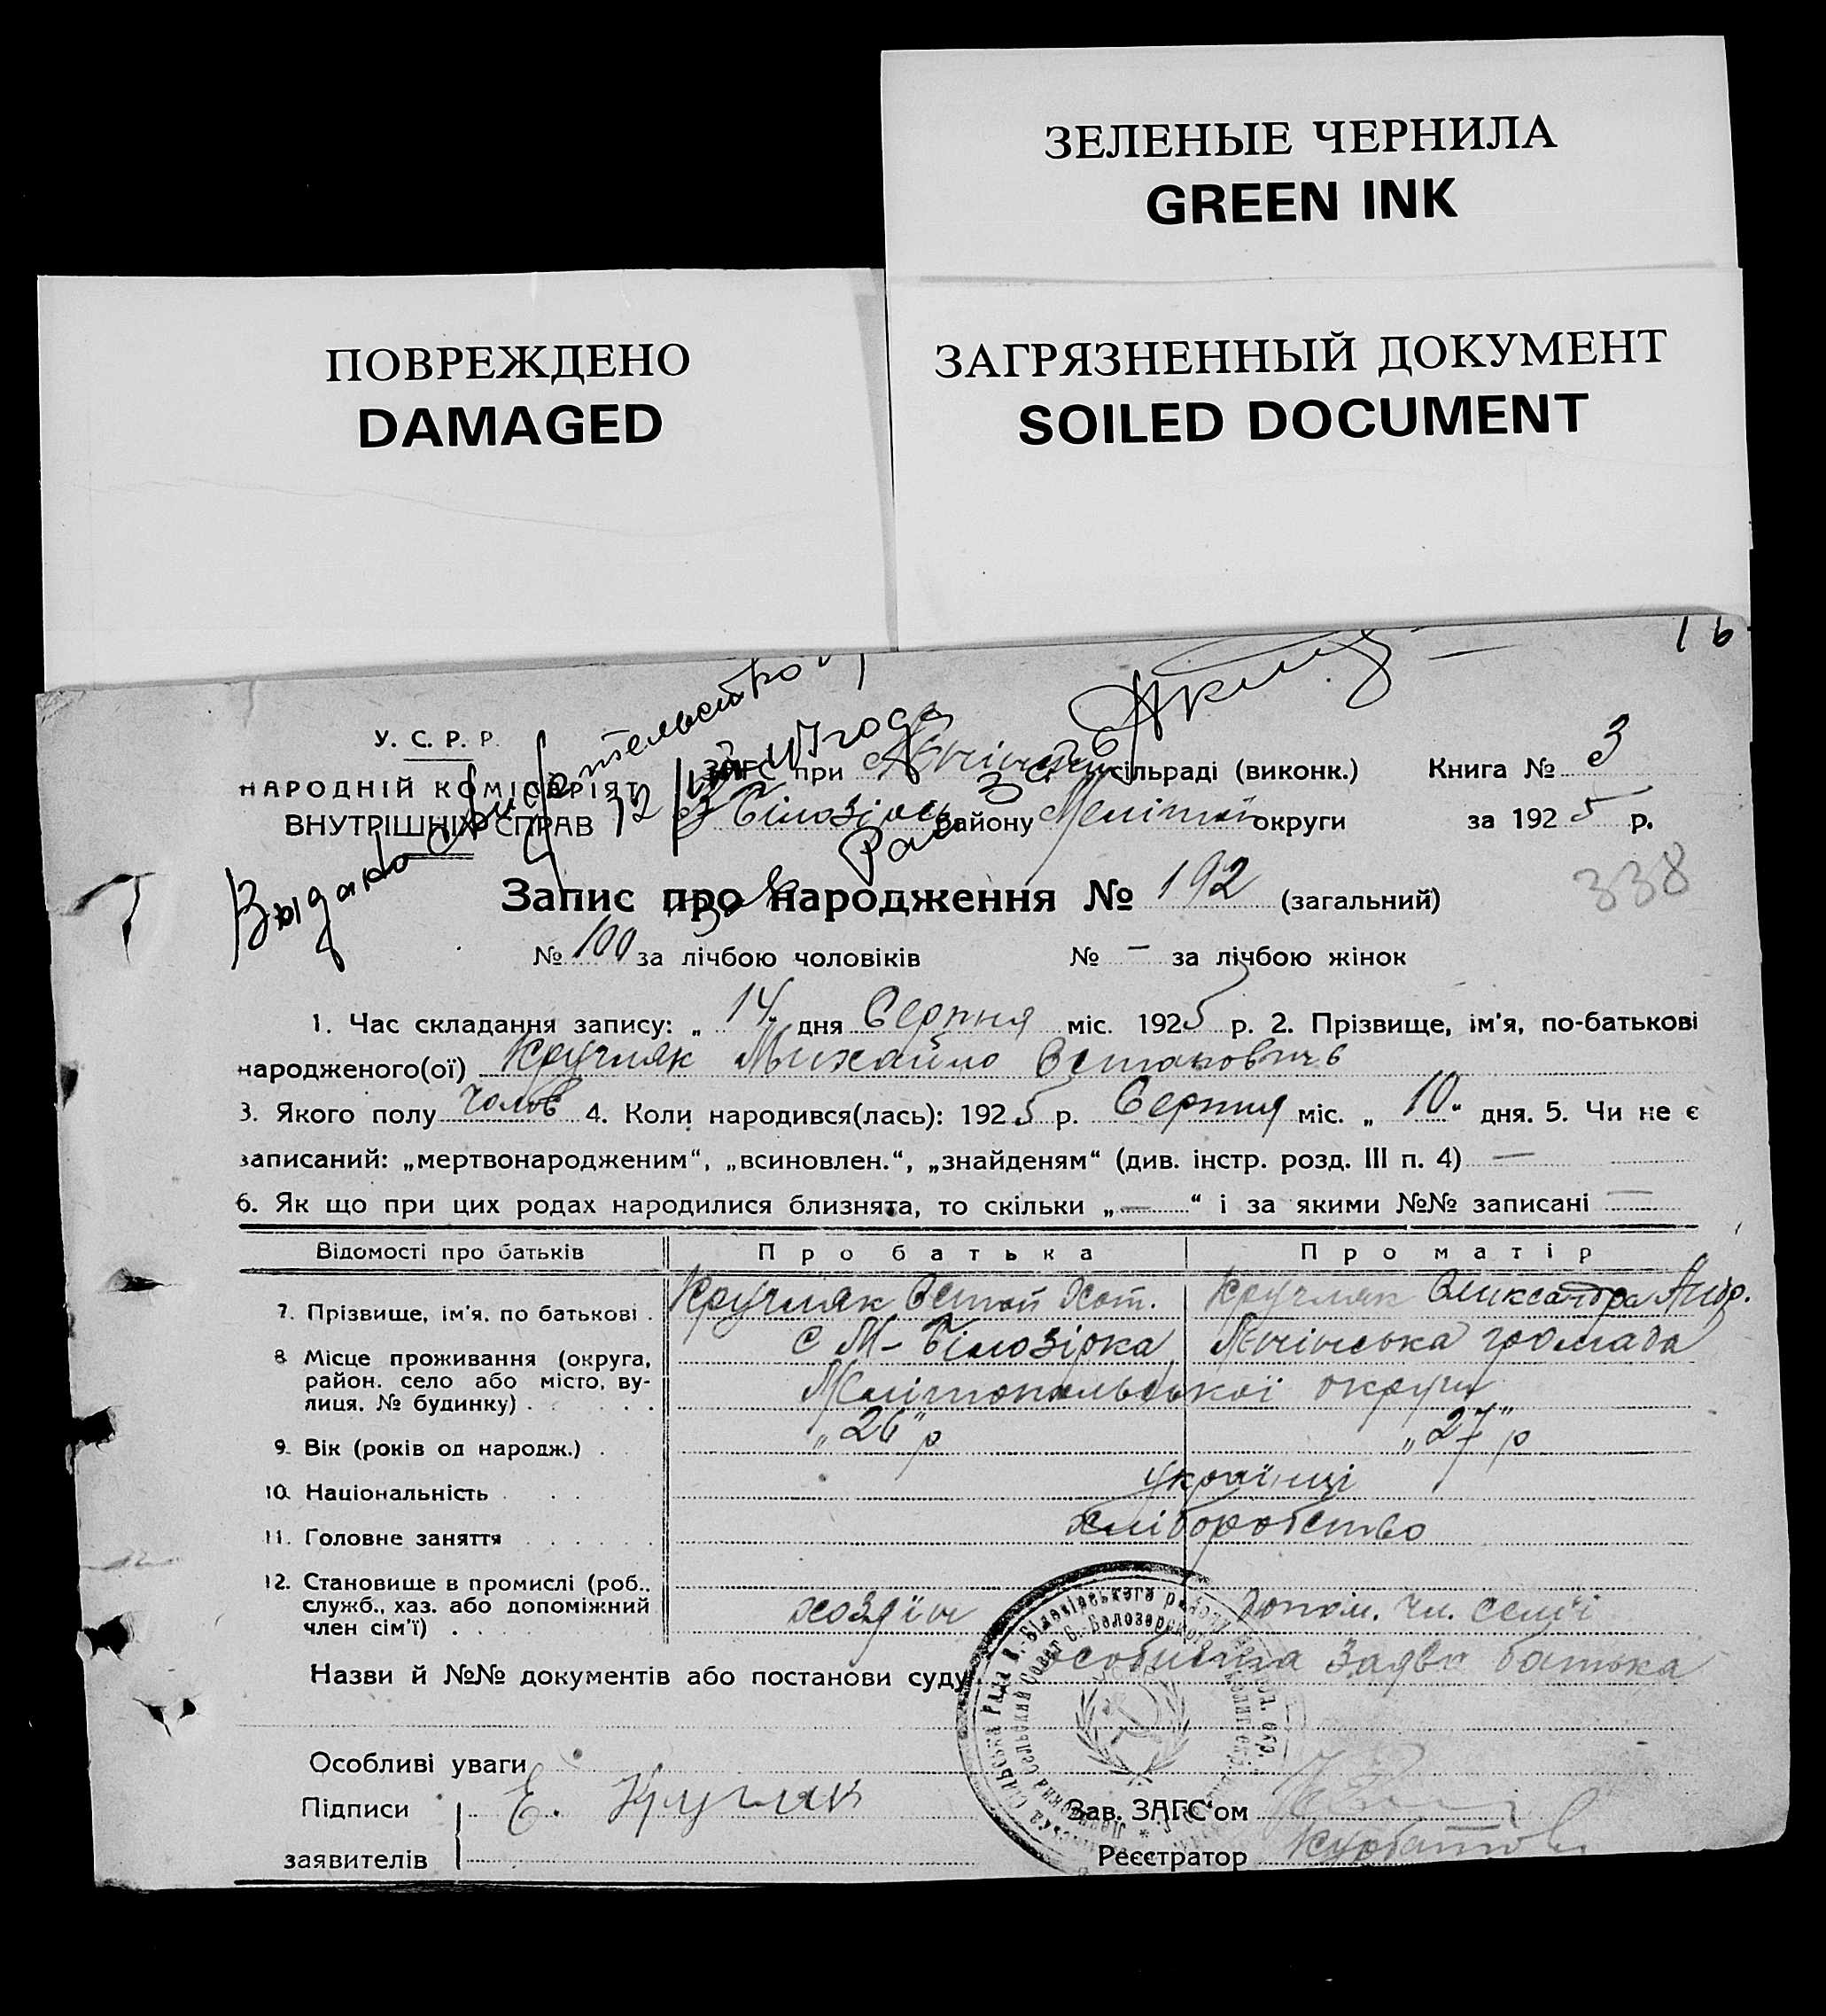 ЗЕЛЕНЫЕ ЧЕРНИЛА
GREEN INK
ПОВРЕЖДЕНО
DAMAGED
ЗАГРЯЗНЕННЫЙ ДОКУМЕНТ
SOILED DOCUMENT
16
У. С. Р. Р.
НАРОДНІЙ КОМІСАРІЯТ
ВНУТРІШНІХ СПРАВ
Выдано
ЗАГС при сільраді (виконк.) Книга № 3
району округи за 1925 р.
Запис про народження № 192 (загальний)
338
№ 100 за лічбою чоловіків № — за лічбою жінок
1. Час складання запису: „ 14 дня Серпня міс. 1925 р. 2. Прізвище, ім'я, по-батькові
народженого(ої) Кручляк Михайло Остаповичь
3. Якого полу Чолов 4. Коли народився(лась): 1925 р. Серпня міс. „ 10 “ дня. 5. Чи не є
записаний: „мертвонародженим“, „всиновлен.“, „знайденям“ (див. інстр. розд. III п. 4) —
6. Як що при цих родах народилися близнята, то скільки „—“ і за якими №№ записані —
Відомості про батьків Про батька Про матір
7. Прізвище, ім'я, по батькові . Кручляк Остап Кручляк Олександра Андр.
8. Місце проживання (округа, район, село або місто, ву-лиця, № будинку) . с М-Білозірка громада
Мелітопольської округи
9. Вік (років од народж.) . „26“ р „27“ р
10. Національність українці
11. Головне заняття хліборобство
12. Становище в промислі (роб., служб., хаз. або допоміжний член сім'ї) . хозяїн допом. чл. семї
Назви й №№ документів або постанови суду особиста заява батька
Особливі уваги
Підписи Е.
заявителів
Зав. ЗАГС'ом
Реєстратор